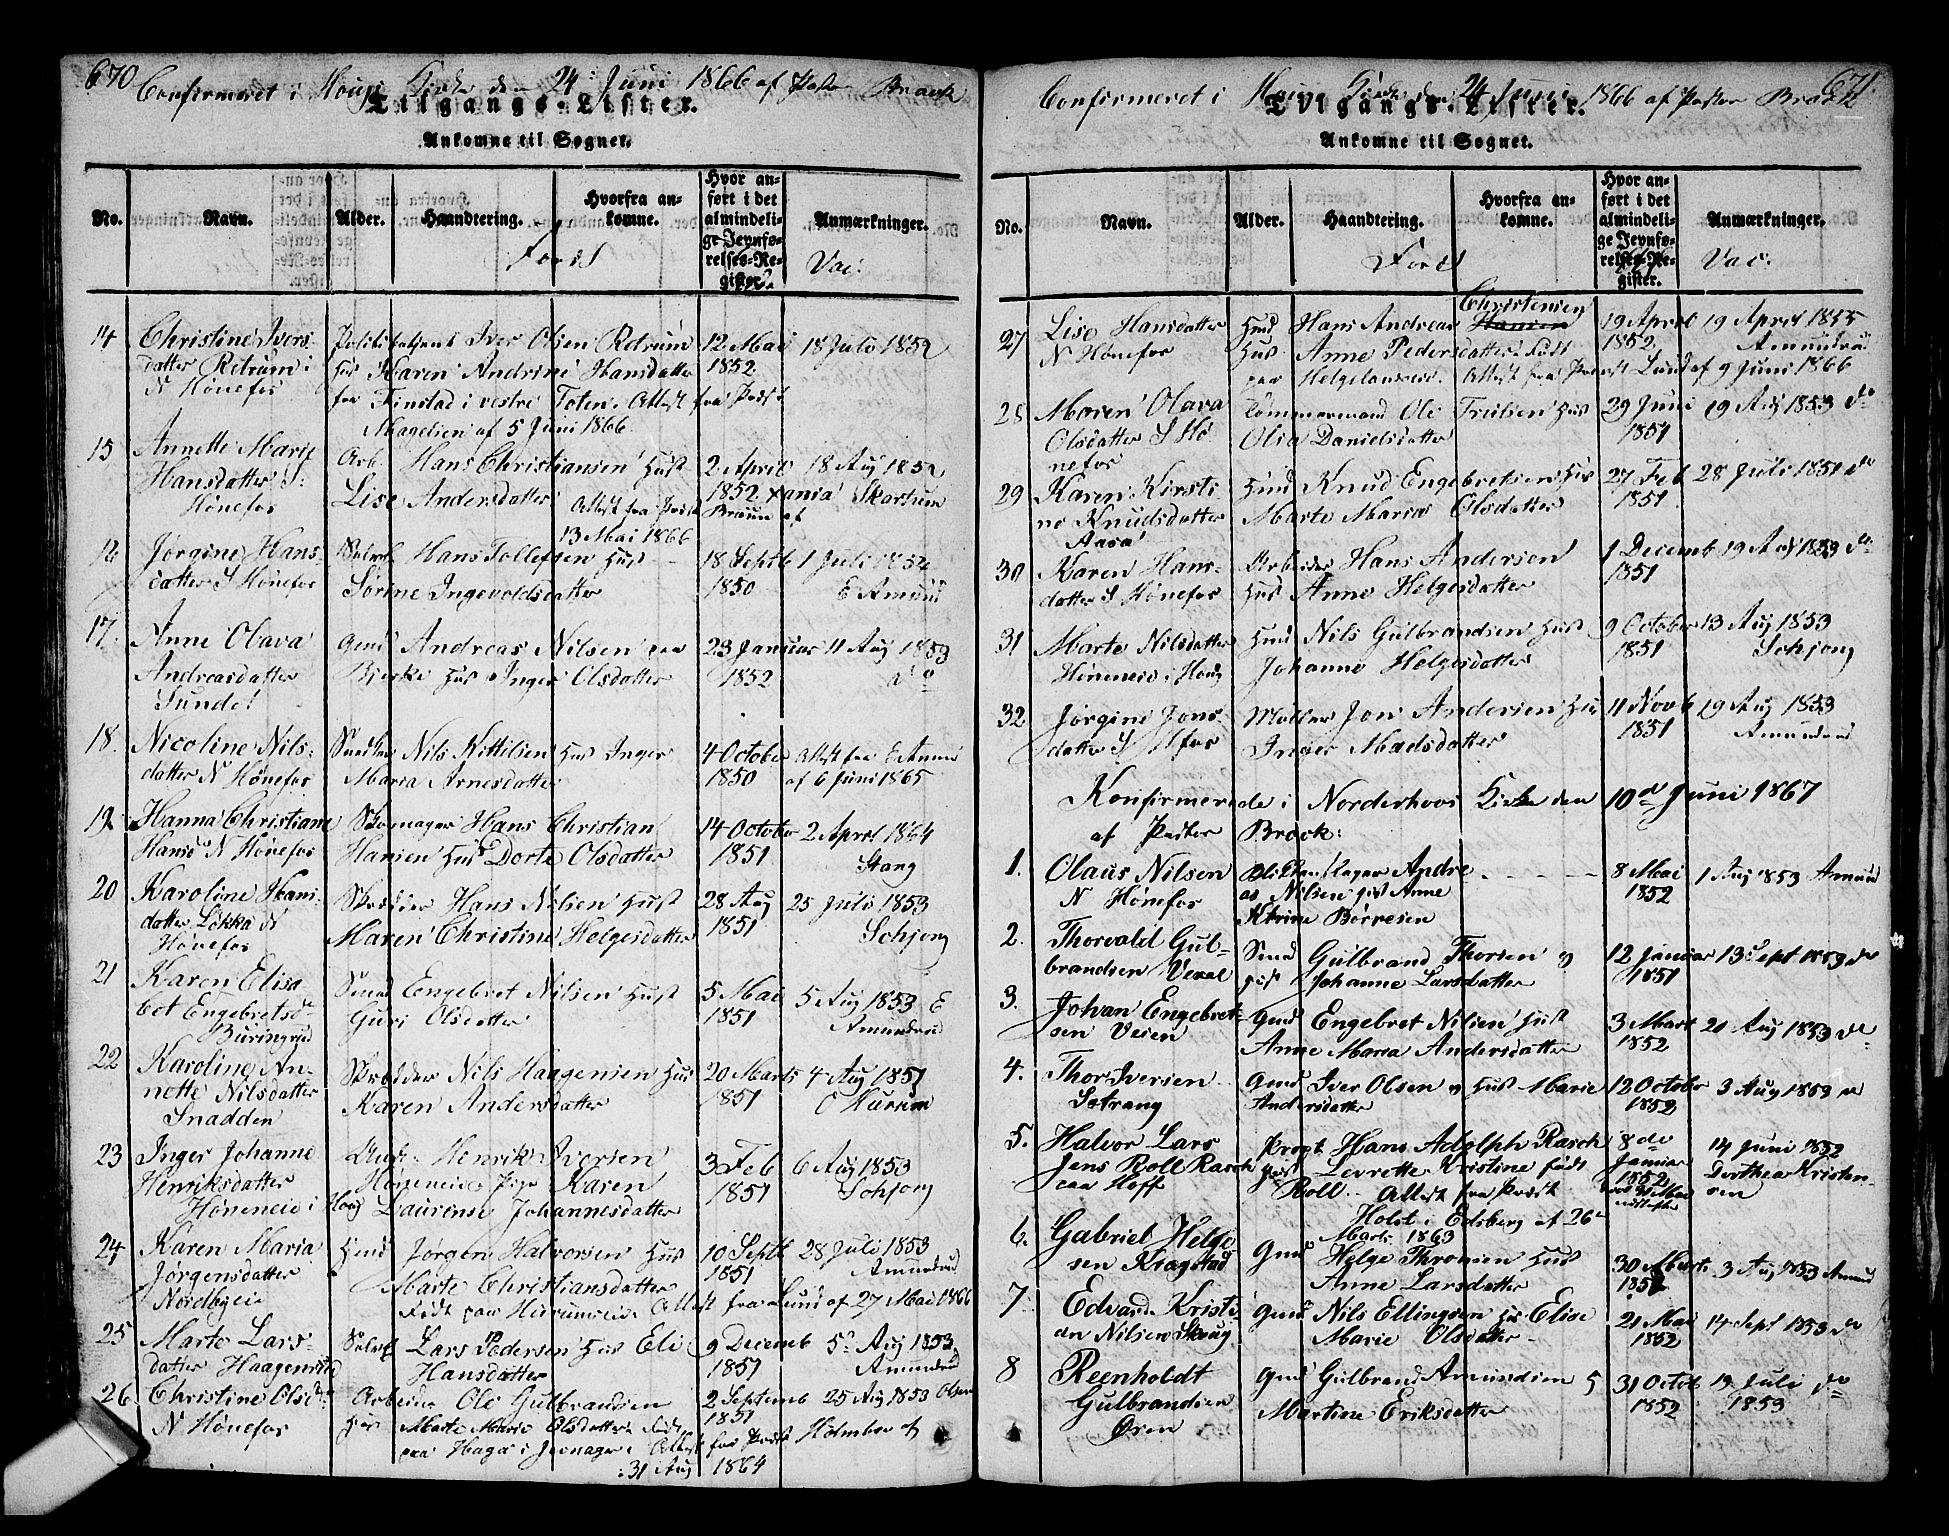 670 Confirmeret i Houg Kirke den 24 Juni 1866 af Pastor Brock
Tilgangs-Lister.
Ankomne til Sognet.
No. Navn. Alder. Haandtering. Hvorfra ankomne. Hvor anført i det almindelige Jevnførelses-Register. Anmærkninger.
Født Vac.
14 Christine Iversdatter Retrum i N Hønefos
Politibetjent Iver Olsen Retrum
Hus Karen Andrine Hansdatter
fra Finstad i vestre Toten. Attest fra Præst
Magelsen af 5 Juni 1866.
12 Mai 1852
18 Juli 1852
15 Annette Marie Hansdatter S: Hønefos
Arb. Hans Christiansen Hust
Lise Andersdatter
Attest fra Præst Bruun af
13 Mai 1866
2 April 1852
18 Aug 1852
16 Jørgine Hansdatter S Hønefos
Selvf Hans Tollefsen Hust
Sørine Ingevoldsdatter
18 Septb 1850
1 Juli 1852
E Amund
17. Anne Olava Andreasdatter Sunde
Gmd Andreas Nilsen paa
Bjerke Hus Inger Olsdatter
23 Januar 1852
11 Aug 1853
do
18. Nicoline Nilsdatter N Hønefos
Nils Kittilsen Hus Inger
Maria Arnesdatter
4 October 1850
Attest fra E Amund
af 6 Juni 1865
19 Hanna Christiane Hansd N Hønefos
Skomager Hans Christian
Hansen Hus Dorte Olsdatter
14 October 1851
2 April 1864
Stang
20 Karoline Hansdatter Løkka N Hønefos
Skrædder Hans Nilsen Hust
Maren Christine Helgesdatter
28 Aug 1851
25 Juli 1853
Schjong
21 Karen Elisabet Engebretsd
Smed Engebret Nilsen Hust
Guri Olsdatter
5 Mai 1851
5 Aug 1853 E
Amundrud
22 Karoline Annette Nilsdatter Snadden
Skrædder Nils Haagensen Hus
Karen Andersdatter
20 Marts 1851
4 Aug 1851
23 Inger Johanne Henriksdatter Høneneie i Houg
Henrik Iversen
Høneneie Pige Karen
Laurense Johannesdatter
3 Feb 1851
6 Aug 1853
Schjong
24 Karen Maria Jørgensdatter Nordbyeie
Hmd Jørgen Halvorsen Hus
Marte Christiansdatter
Født paa Attest fra Lund af 27 Mai 1866
10 Septb 1851
28 Juli 1853
Amundrud
25 Marte Larsdatter Haagensted
Selvf Lars Pedersen Hus Eli
Hansdatter
9 Decemb 1851
5 Aug 1853
Amundrud
26 Christine Olsdr N Hønefos
Arbeider Ole Gulbrandsen
Hus Marte Marie Olsdatter Født
paa Haga i Jevnager Attest fra Præst Holmboe af
31 Aug 1864
2 Septemb 1851
25 Aug 1853
671.
Confirmeret i Houg Kirke den 24 Juni 1866 af Pastor Brock
Tilgangs-Lister.
Ankomne til Sognet.
No. Navn. Alder. Haandtering. Hvorfra ankomne. Hvor anført i det almindelige Jevnførelses-Register. Anmærkninger.
Født Vac.
27 Lise Hansdatter N Hønefos
Hmd Hans Andreas Hansen Christensen
Hus Anne Pedersdatter. Født
paa Helgelandseie. Attest fra Præst Lund af 9 Juni 1866
19 April 1852
19 April 1855
Amundrud
28 Maren Olava Olsdatter S Hønefos
Tømmermand Ole Truelsen Hus
Olia Danielsdatter
29 Juni 1851
19 Aug 1853 do
29 Karen Kirstine Knudsdatter Aasa
Hmd Knud Engebretsen Hus
Marte Maria Olsdatter
27 Feb 1851
28 Juli 1851 do
30 Karen Hansdatter S Hønefos
Arbeider Hans Andersen
Hus Anne Helgesdatter
1 Decemb 1851
19 Aug 1853 do
31 Marte Nilsdatter Høneneie i Houg
Hmd Nils Gulbrandsen Hus
Johanne Helgesdatter
9 October 1851
13 Aug 1853
Schjong
32 Jørgine Jonsdatter S Hfos
Møller Jon Andersen Hus
Inger Madsdatter
11 Novb 1851
19 Aug 1853
Amundrud
Konfirmerede i Norderhovs Kirke den 10de Juni 1867
af Pastor Brock:
1. Olaus Nilsen N Hønefos
Andreas Nilsen Hust Anne
Katrine Børresen
8 Mai 1852
1 Aug 1853 Amund
2. Thorvald Gulbrandsen Vexal
Smed Gulbrand Thorsen og
Hust Johanne Larsdatter
12 Januar 1851
13 Sept 1853 do
3. Johan Engebretsen Veien
Gmd Engebret Nilsen Hust
Anne Maria Andersdatter
3 Mart 1852
21 Aug 1853 do
4. Thor Iversen Setrang
Gmd Iver Olsen og Hus Marie
Andersdatter
12 October 1852
3 Aug 1853 do
5. Halvor Lars Jens Roll Rasch paa Hoff
Propt Hans Adolph Rasch
Hust Levrette Kristine født
Roll. Attest fra Præst
Holst i Edsberg af 26
Marts 1863
8de Januar 1852
14 Juni 1852
Dorthea Kristensen
6. Gabriel Helgesen Kragstad
Gmd Helge Thronsen Hust
Anne Larsdatter
30 Marts 1851
3 Aug 1853 Amund
7 Edvard Kristian Nilsen Skoug
Gmd Nils Ellingsen Hus Elise
Marie Olsdatter
21 Mai 1852
14 Sept 1853 do
8 Reenholdt Gulbrandsen Øren
Gmd Gulbrand Amundsen
Martine Eriksdatter
31 Octob 1852
19 Juli 1853 do